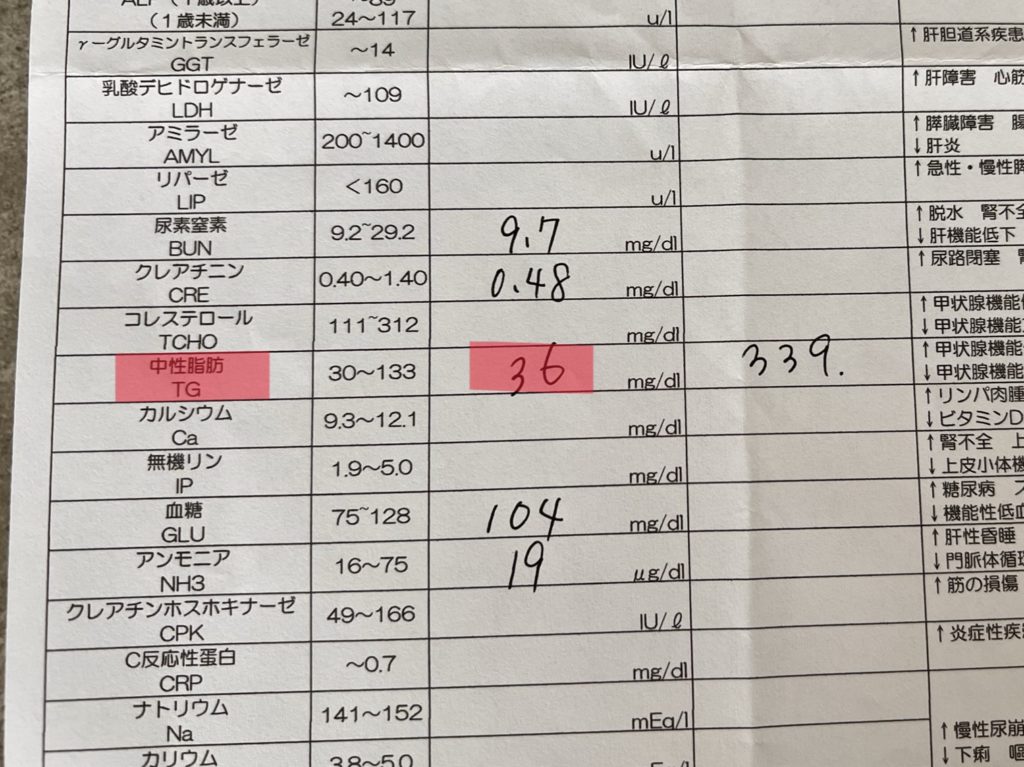 (1歳未満) 24~117 u/l
γーグルタミントランスフェラーゼ ↑肝胆道系疾患
GGT ~14 IU/ℓ
乳酸デヒドロゲナーゼ ↑肝障害 心筋
LDH ~109 IU/ℓ
アミラーゼ ↑膵臓障害 腸
AMYL 200~1400 u/l ↓肝炎
リパーゼ ↑急性・慢性膵
LIP <160 u/l
尿素窒素 ↑脱水 腎不全
BUN 9.2~29.2 9.7 mg/dl ↓肝機能低下
クレアチニン ↑尿路閉塞
CRE 0.40~1.40 0.48 mg/dl
コレステロール ↑甲状腺機能低
TCHO 111~312 mg/dl ↓甲状腺機能
中性脂肪 ↑甲状腺機能
TG 30~133 36 mg/dl 339. ↓甲状腺機能
カルシウム ↑リンパ肉腫
Ca 9.3~12.1 mg/dl ↓ビタミンD
無機リン ↑腎不全 上
IP 1.9~5.0 mg/dl ↓上皮小体機
血糖 ↑糖尿病
GLU 75~128 104 mg/dl ↓機能性低血
アンモニア ↑肝性昏睡
NH3 16~75 19 μg/dl ↓門脈体循環
クレアチンホスホキナーゼ ↑筋の損傷
CPK 49~166 IU/ℓ
C反応性蛋白 ↑炎症性疾患
CRP ~0.7 mg/dl
ナトリウム
Na 141~152 mEq/l ↑慢性尿崩
カリウム 3.8~5.0 ↓下痢 嘔